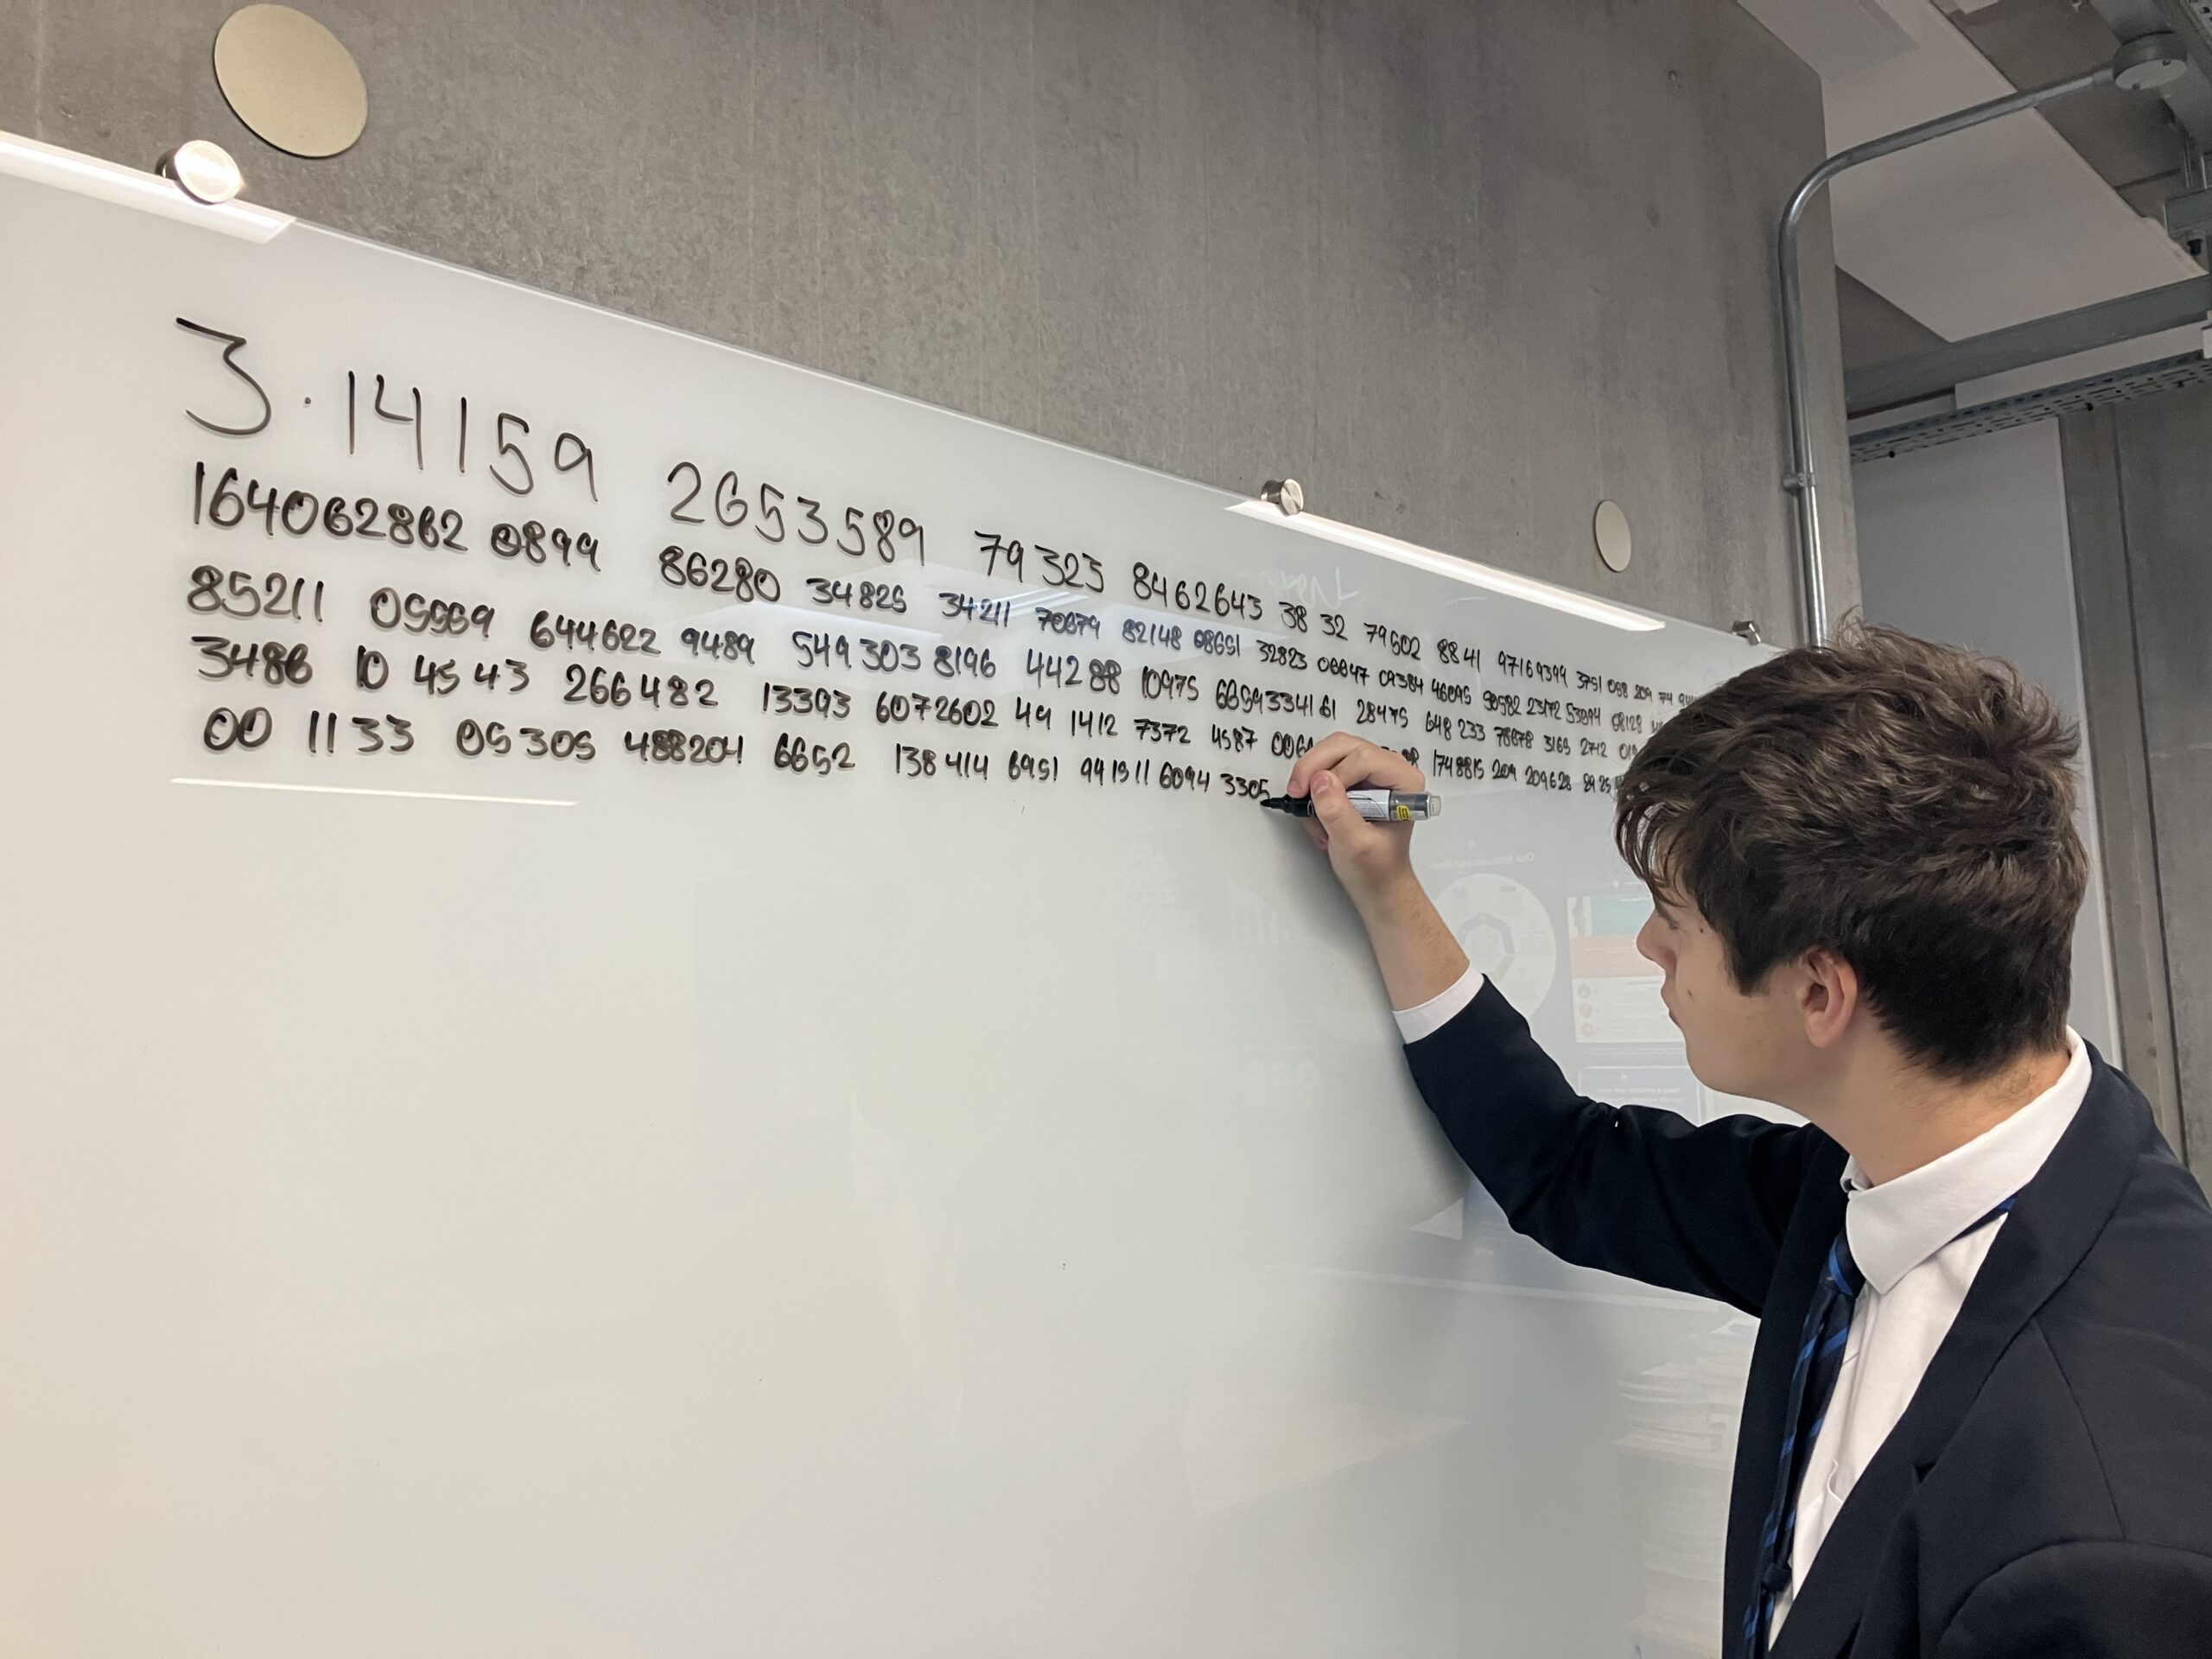 3.14159 2653589 79323 8462643 38 32 79502 88 41 97169399 3751 058 209 74 94
164062862 0899 86280 34825 34211 70679 82148 08651 32823 06647 09384 46095 50582 23172 53594 08128
85211 05559 644622 9489 549 303 8196 44288 10975 66593341 61 28475 648 233 78678 3165 2712 019
3486 10 45 43 266 482 13393 6072602 49 1412 7372 4587 006 1748815 209 209628 29 25
00 1133 05 305 488204 6652 138 414 6951 941511 6094 3305